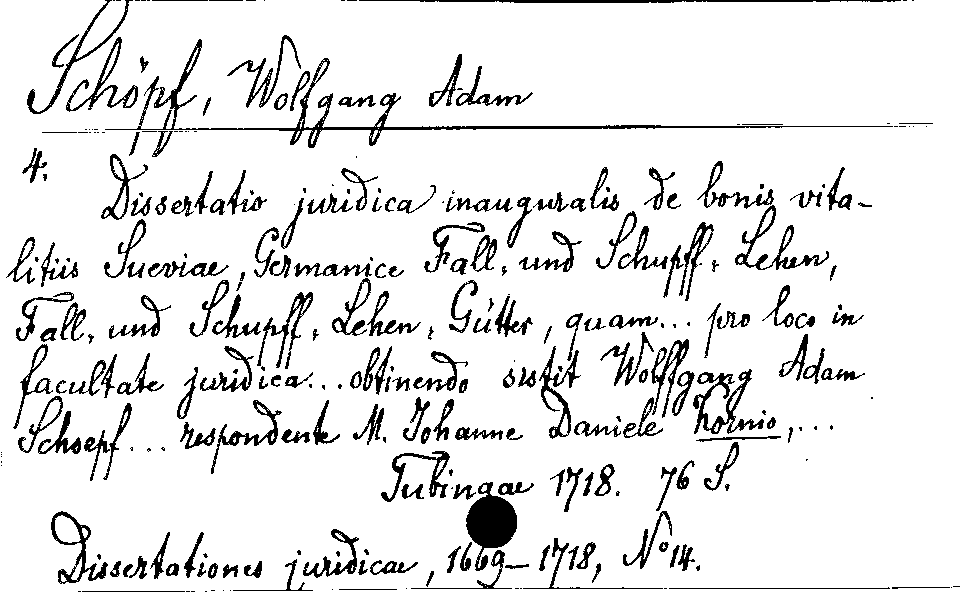 Schöpf, Wolfgang Adam
4.
Dissertatio juridica inauguralis de bonis vita-
litiis Sueviae, Germanice Fall- und Schupff-Lehen,
Fall- und Schupff-Lehen-Gütter, quam... pro loco in
facultate juridica... obtinendo sistit Wolffgang Adam
Schoepf... respondente M. Johanne Daniele Hornio,...
Tubingae 1718. 76 S.
Dissertationes juridicae, 1669-1718, No 14.